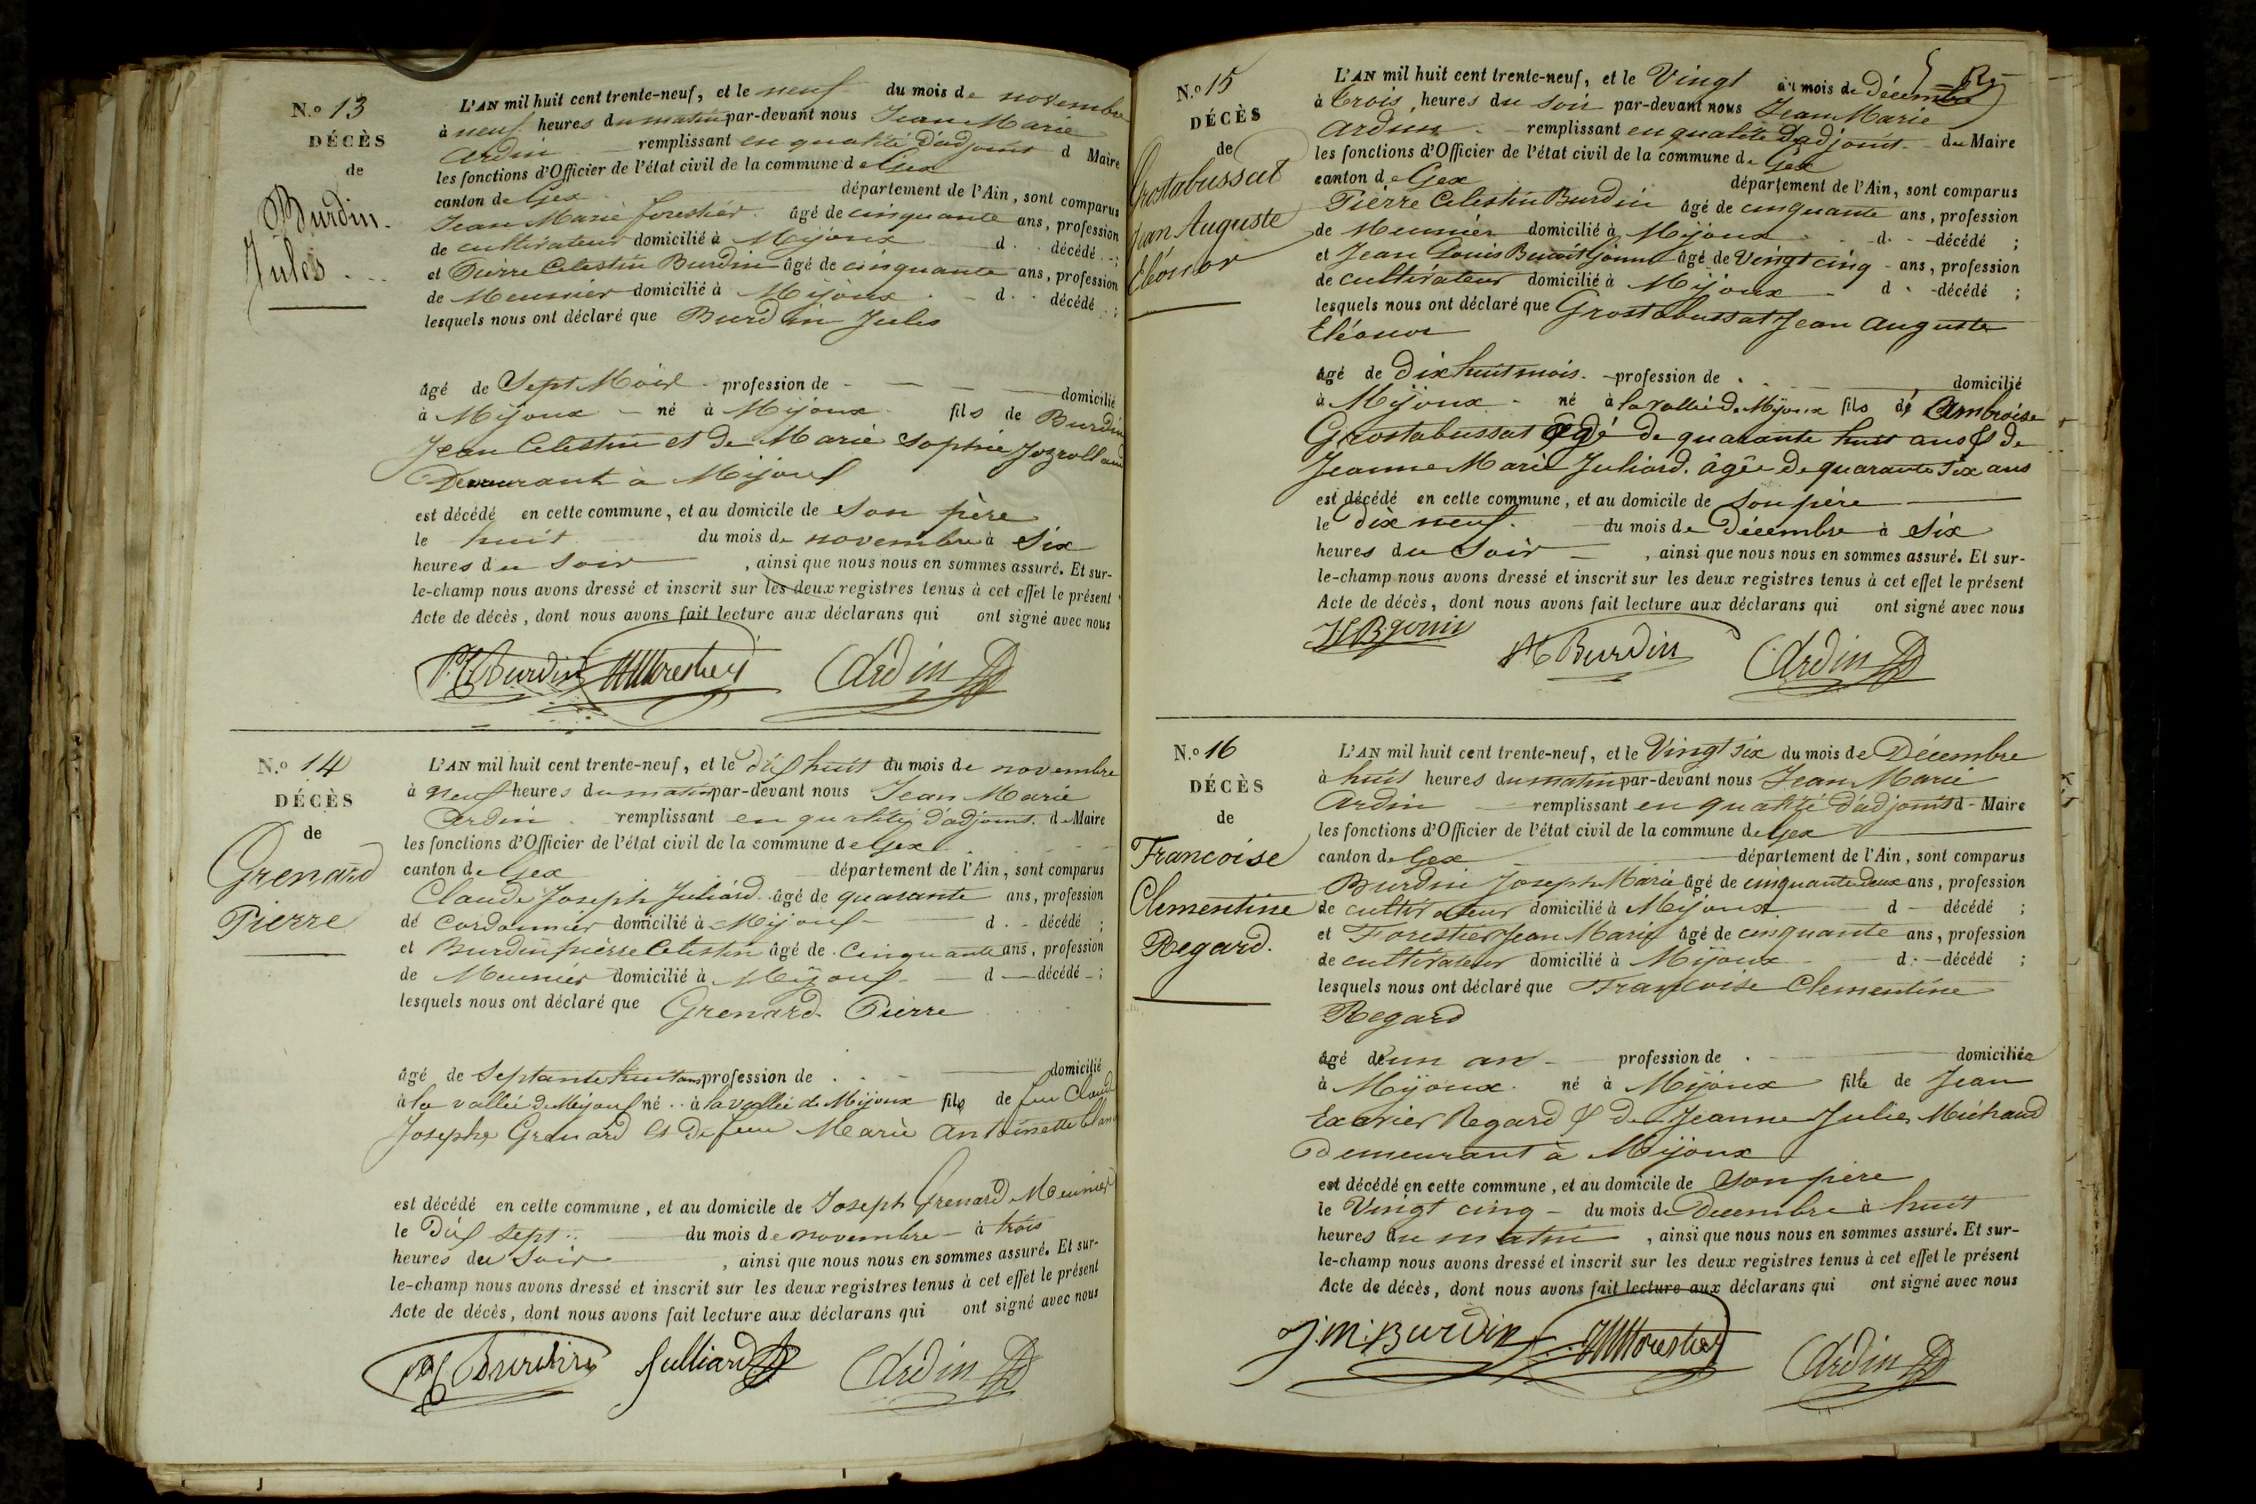 N.o 13
DÉCÈS
de
Burdin
Jules
L'AN mil huit cent trente-neuf, et le neuf du mois de novembre
à neuf heures du matin par-devant nous Jean Marie
Ardin remplissant en qualité d'adjoint d Maire
les fonctions d'Officier de l'état civil de la commune de Gex
canton de Gex département de l'Ain, sont comparus
Jean Marie forestier âgé de cinquante ans, profession
de cultivateur domicilié à Mijoux d décédé ;
et Pierre Celestin Burdin âgé de cinquante ans, profession
de Meunier domicilié à Mijoux d décédé ;
lesquels nous ont déclaré que Burdin Jules
âgé de Sept Mois profession de domicilié
à Mijoux né à Mijoux fils de Burdin
Jean Celestin et de Marie Sophie
Demeurant à Mijoux
est décédé en cette commune, et au domicile de son père
le huit du mois de novembre à Six
heures du soir, ainsi que nous nous en sommes assuré. Et sur-
le-champ nous avons dressé et inscrit sur les deux registres tenus à cet effet le présent
Acte de décès, dont nous avons fait lecture aux déclarans qui ont signé avec nous
Burdin JMforestier Ardin
N.o 14
DÉCÈS
de
Grenard
Pierre
L'AN mil huit cent trente-neuf, et le dix huit du mois de novembre
à neuf heures du matin par-devant nous Jean Marie
Ardin remplissant en qualité d'adjoint de Maire
les fonctions d'Officier de l'état civil de la commune de Gex
canton de Gex département de l'Ain, sont comparus
Claude Joseph Juliard âgé de quarante ans, profession
de Cordonnier domicilié à Mijoux d décédé ;
et Burdin pierre Celestin âgé de Cinquante ans, profession
de Meunier domicilié à Mijoux d décédé ;
lesquels nous ont déclaré que Grenard Pierre
âgé de Septante huit ans profession de domicilié
à la vallée de Mijoux né à la vallée de Mijoux fils de feu Claude
Joseph Grenard et de feue Marie Antoinette
est décédé en cette commune, et au domicile de Joseph Grenard Meunier
le Dix sept du mois de novembre à trois
heures du Soir, ainsi que nous nous en sommes assuré. Et sur-
le-champ nous avons dressé et inscrit sur les deux registres tenus à cet effet le présent
Acte de décès, dont nous avons fait lecture aux déclarans qui ont signé avec nous
Burdin Julliard Ardin
N.o 15
DÉCÈS
de
Grostabussat
Jean Auguste
Eléonor
L'AN mil huit cent trente-neuf, et le Vingt du mois de Décembre
à trois heures du soir par-devant nous Jean Marie
Ardin remplissant en qualité d'adjoint du Maire
les fonctions d'Officier de l'état civil de la commune de Gex
canton de Gex département de l'Ain, sont comparus
Pierre Celestin Burdin âgé de cinquante ans, profession
de Meunier domicilié à Mijoux d décédé ;
et Jean Louis Benoit Gonin âgé de Vingt cinq ans, profession
de cultivateur domicilié à Mijoux d décédé ;
lesquels nous ont déclaré que Grostabussat Jean Auguste
Eléonor
âgé de dix huit mois profession de domicilié
à Mijoux né à la vallée de Mijoux fils de Ambroise
Grostabussat âgé de quarante huit ans & de
Jeanne Marie Juliard âgée de quarante six ans
est décédé en cette commune, et au domicile de son père
le dix neuf du mois de Décembre à Six
heures du Soir, ainsi que nous nous en sommes assuré. Et sur-
le-champ nous avons dressé et inscrit sur les deux registres tenus à cet effet le présent
Acte de décès, dont nous avons fait lecture aux déclarans qui ont signé avec nous
JLBgonin
Burdin Ardin
N.o 16
DÉCÈS
de
Francoise
Clementine
Regard.
L'AN mil huit cent trente-neuf, et le Vingt six du mois de Décembre
à huit heures du matin par-devant nous Jean Marie
Ardin remplissant en qualité d'adjoint d Maire
les fonctions d'Officier de l'état civil de la commune de Gex
canton de Gex département de l'Ain, sont comparus
Burdin Joseph Marie âgé de cinquante deux ans, profession
de cultivateur domicilié à Mijoux d décédé ;
et Forestier Jean Marie âgé de cinquante ans, profession
de cultivateur domicilié à Mijoux d décédé ;
lesquels nous ont déclaré que Francoise Clementine
Regard
âgé d'un an profession de domiciliée
à Mijoux né à Mijoux fille de Jean
Exavier Regard & de Jeanne Julie Michaud
Demeurant à Mijoux
est décédé en cette commune, et au domicile de Son père
le Vingt cinq du mois de Decembre à huit
heures du matin, ainsi que nous nous en sommes assuré. Et sur-
le-champ nous avons dressé et inscrit sur les deux registres tenus à cet effet le présent
Acte de décès, dont nous avons fait lecture aux déclarans qui ont signé avec nous
J.M. Burdin JMforestier Ardin